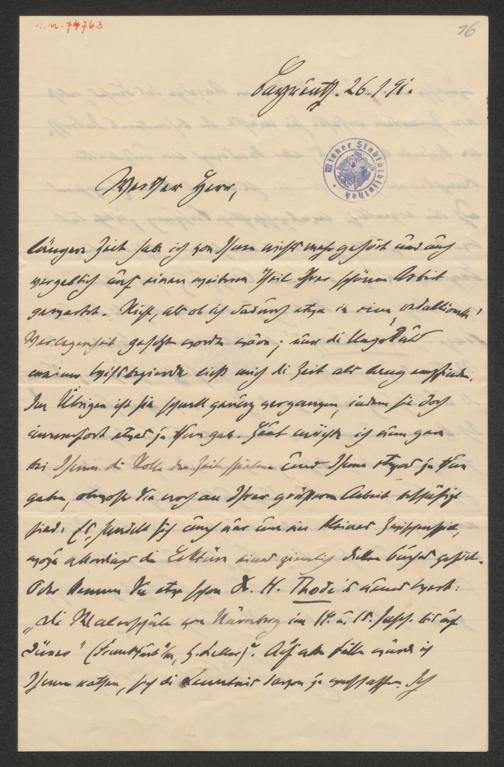 I.N. 74763
16
Bayreuth. 26.1.91.
Wiener Stadtbibliothek
Werther Herr,
längere Zeit habe ich von Ihnen nichts mehr gehört und auch
vergeblich auf einen weiteren Theil Ihrer schönen Arbeit
gewartet. Nicht, als ob ich dadurch etwa in eine redaktionelle
Verlegenheit gesetzt worden wäre; nur die Ungeduld
meiner Wißbegierde ließ mich die Zeit als lang empfinden.
Im Übrigen ist sie schnell genug vergangen, indem sie doch
immerfort etwas zu thun gab. Heut möchte ich nun gern
bei Ihnen die Rolle der Zeit spielen und Ihnen etwas zu thun
geben, obwohl Sie noch an Ihrer größeren Arbeit beschäftigt
sind. Es handelt sich auch nur um ein kleines
wozu allerdings die Lektüre eines ziemlich dicken Buches gehört.
Oder kennen Sie etwa schon Dr. H. Thode's neues Werk:
„Die Malerschule von Nürnberg im 14. u. 15. Jahrh. bis auf
Dürer" (Frankfurt a/M, H. Keller)? Auf alle Fälle würde ich
Ihnen rathen, sich die Kenntnis davon zu verschaffen. Ich